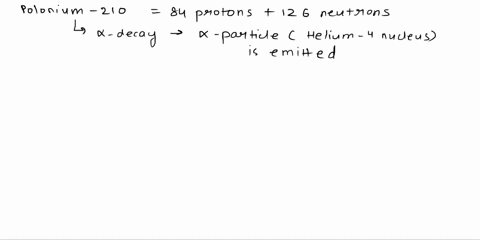 Polonium-210 = 84 protons + 126 neutrons
↳ α-decay → α-particle ( Helium-4 nucleus)
is emitted